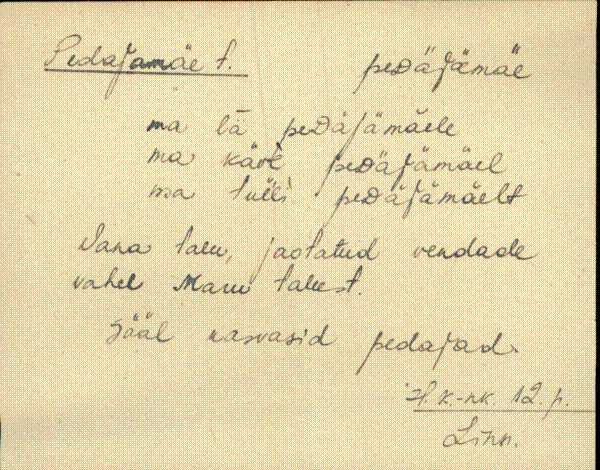 Pedajamäe t. peDäjämäe
ma lä peDäjämäele
ma käve peDäjämäel
ma tulli peDäjämäelt
Vana talu, jaotatud vendade
vahel Maru talust.
Sääl kasvasid pedajad.
H. k.-nk. 12. p.
Linn.